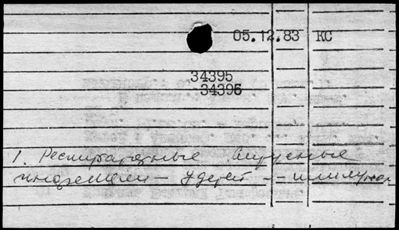 05.12.83 КС
34395
34395
1. Респираторные вирусные
инфекции — у детей — иммунол